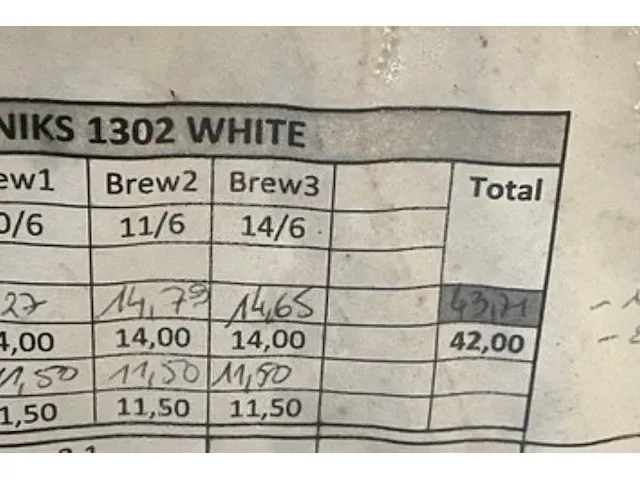 NIKS 1302 WHITE
ew1 Brew2 Brew3 Total
0/6 11/6 14/6
27 14,79 14,65 43,71
4,00 14,00 14,00 42,00
11,50 11,50 11,50
1,50 11,50 11,50